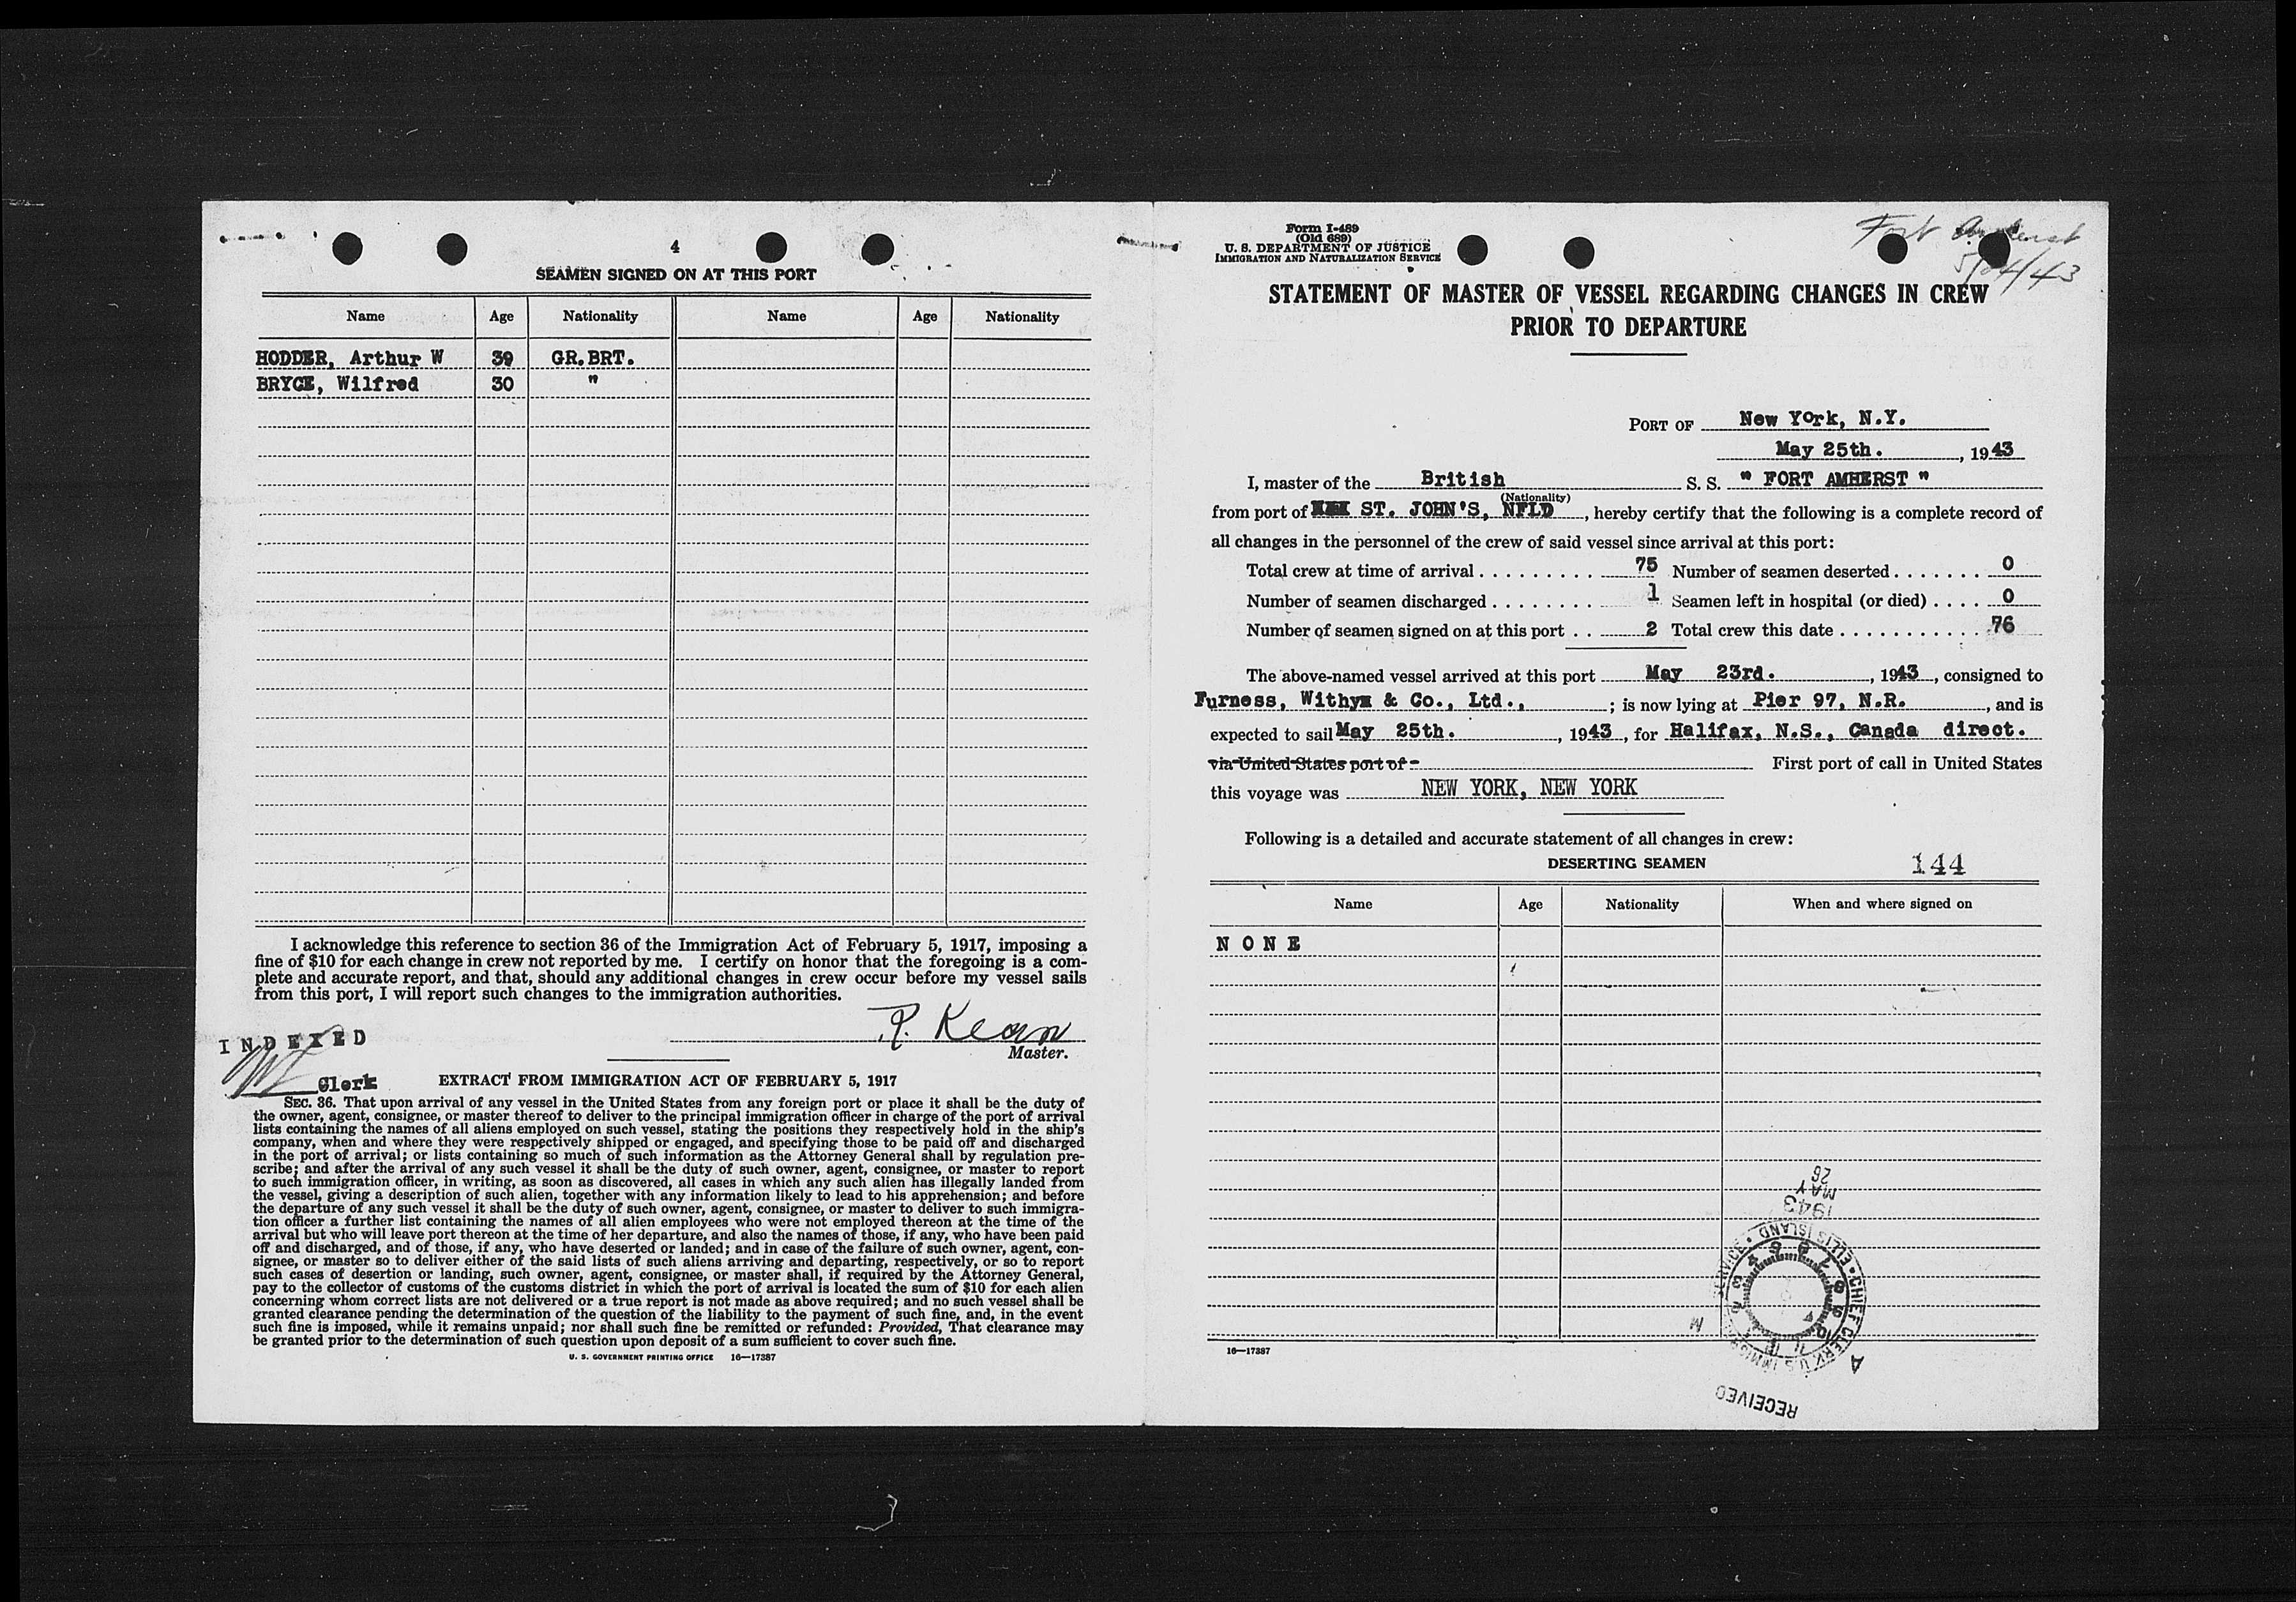 4
SEAMEN SIGNED ON AT THIS PORT
Name Age Nationality Name Age Nationality
HODDER, Arthur W 39 GR.BRT.
BRYCE, Wilfred 30 "
I acknowledge this reference to section 36 of the Immigration Act of February 5, 1917, imposing a
fine of $10 for each change in crew not reported by me. I certify on honor that the foregoing is a com-
plete and accurate report, and that, should any additional changes in crew occur before my vessel sails
from this port, I will report such changes to the immigration authorities.
P. Kean
Master.
INDEXED
Clerk
EXTRACT FROM IMMIGRATION ACT OF FEBRUARY 5, 1917
SEC. 36. That upon arrival of any vessel in the United States from any foreign port or place it shall be the duty of
the owner, agent, consignee, or master thereof to deliver to the principal immigration officer in charge of the port of arrival
lists containing the names of all aliens employed on such vessel, stating the positions they respectively hold in the ship's
company, when and where they were respectively shipped or engaged, and specifying those to be paid off and discharged
in the port of arrival; or lists containing so much of such information as the Attorney General shall by regulation pre-
scribe; and after the arrival of any such vessel it shall be the duty of such owner, agent, consignee, or master to report
to such immigration officer, in writing, as soon as discovered, all cases in which any such alien has illegally landed from
the vessel, giving a description of such alien, together with any information likely to lead to his apprehension; and before
the departure of any such vessel it shall be the duty of such owner, agent, consignee, or master to deliver to such immigra-
tion officer a further list containing the names of all alien employees who were not employed thereon at the time of the
arrival but who will leave port thereon at the time of her departure, and also the names of those, if any, who have been paid
off and discharged, and of those, if any, who have deserted or landed; and in case of the failure of such owner, agent, con-
signee, or master so to deliver either of the said lists of such aliens arriving and departing, respectively, or so to report
such cases of desertion or landing, such owner, agent, consignee, or master shall, if required by the Attorney General,
pay to the collector of customs of the customs district in which the port of arrival is located the sum of $10 for each alien
concerning whom correct lists are not delivered or a true report is not made as above required; and no such vessel shall be
granted clearance pending the determination of the question of the liability to the payment of such fine, and, in the event
such fine is imposed, while it remains unpaid; nor shall such fine be remitted or refunded: Provided, That clearance may
be granted prior to the determination of such question upon deposit of a sum sufficient to cover such fine.
U. S. GOVERNMENT PRINTING OFFICE 16—17387
Form I-489
(Old 689)
U. S. DEPARTMENT OF JUSTICE
IMMIGRATION AND NATURALIZATION SERVICE
Fort Amherst
5/24/43
STATEMENT OF MASTER OF VESSEL REGARDING CHANGES IN CREW
PRIOR TO DEPARTURE
PORT OF New York, N.Y.
May 25th. , 1943
I, master of the British S. S. " FORT AMHERST "
(Nationality)
from port of ST. JOHN'S, NFLD , hereby certify that the following is a complete record of
all changes in the personnel of the crew of said vessel since arrival at this port:
Total crew at time of arrival 75 Number of seamen deserted 0
Number of seamen discharged 1 Seamen left in hospital (or died) 0
Number of seamen signed on at this port 2 Total crew this date 76
The above-named vessel arrived at this port May 23rd. , 1943 , consigned to
Furness, Withy & Co., Ltd., ; is now lying at Pier 97, N.R. , and is
expected to sail May 25th. , 1943 , for Halifax, N.S., Canada direct.
via United States port of First port of call in United States
this voyage was NEW YORK, NEW YORK
Following is a detailed and accurate statement of all changes in crew:
DESERTING SEAMEN 144
Name Age Nationality When and where signed on
N O N E
1943
MAY
26
ELLIS ISLAND
CHIEF CLERK U.S. IMMIGR
SERVICE
M
A
RECEIVED
16—17387